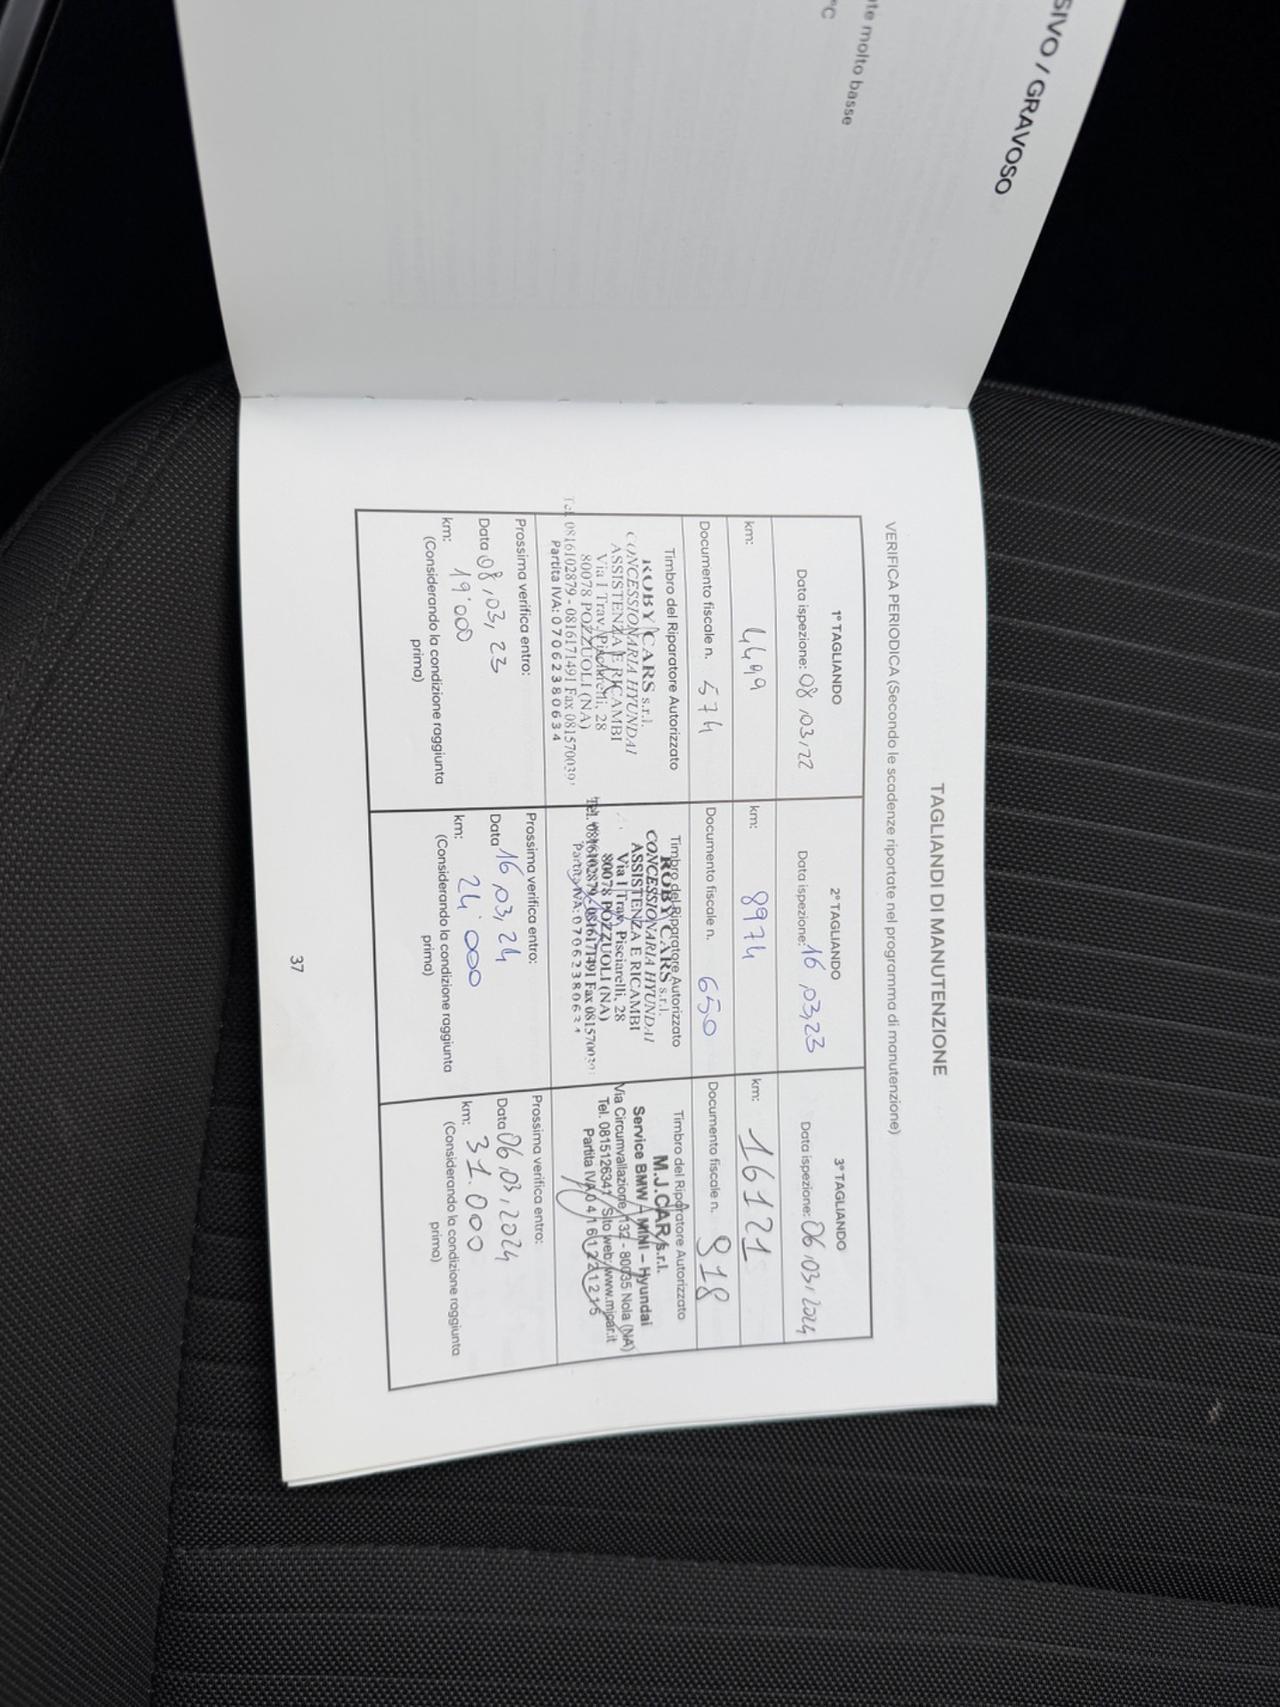 SIVO / GRAVOSO
te molto basse
°C
TAGLIANDI DI MANUTENZIONE
VERIFICA PERIODICA (Secondo le scadenze riportate nel programma di manutenzione)
1° TAGLIANDO
Data ispezione: 08,03,22
km: 4499
Documento fiscale n. 574
Timbro del Riparatore Autorizzato
ROBY CARS s.r.l.
CONCESSIONARIA HYUNDAI
ASSISTENZA E RICAMBI
Via I Trav. Pisciarelli, 28
80078 POZZUOLI (NA)
Tel. 0816102879 - 0816171491 Fax 081570039
Partita IVA: 07062380634
Prossima verifica entro:
Data 08,03,23
km: 19'000
(Considerando la condizione raggiunta
prima)
2° TAGLIANDO
Data ispezione: 16,03,23
km: 8974
Documento fiscale n. 650
Timbro del Riparatore Autorizzato
ROBY CARS s.r.l.
CONCESSIONARIA HYUNDAI
ASSISTENZA E RICAMBI
Via I Trav. Pisciarelli, 28
80078 POZZUOLI (NA)
Tel. 0816102879 - 0816171491 Fax 081570039
Partita IVA: 07062380634
Prossima verifica entro:
Data 16,03,24
km: 24'000
(Considerando la condizione raggiunta
prima)
3° TAGLIANDO
Data ispezione: 06,03,2024
km: 16121
Documento fiscale n. 918
Timbro del Riparatore Autorizzato
M.J.CAR s.r.l.
Service BMW – MINI – Hyundai
Via Circumvallazione, 132 - 80035 Nola (NA)
Tel. 0815126341 Sito web: www.mjcar.it
Partita IVA 04161221215
Prossima verifica entro:
Data 06,03,2024
km: 31.000
(Considerando la condizione raggiunta
prima)
37